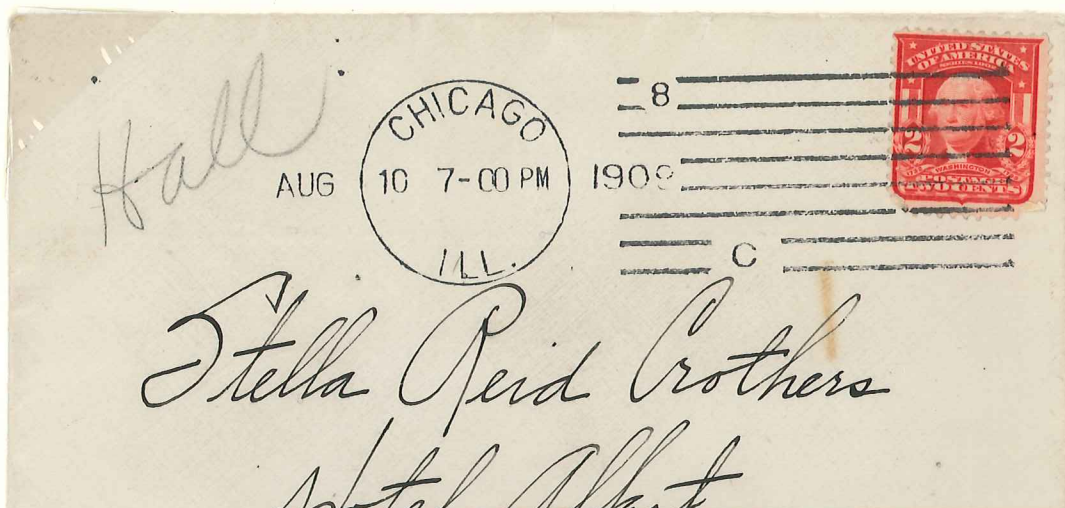 Hall
CHICAGO
AUG 10 7-00 PM 1908
ILL.
8
C
UNITED STATES
OF AMERICA
SERIES 1902
2 2
WASHINGTON
POSTAGE
TWO CENTS
Stella Reid Crothers
Hotel Albert